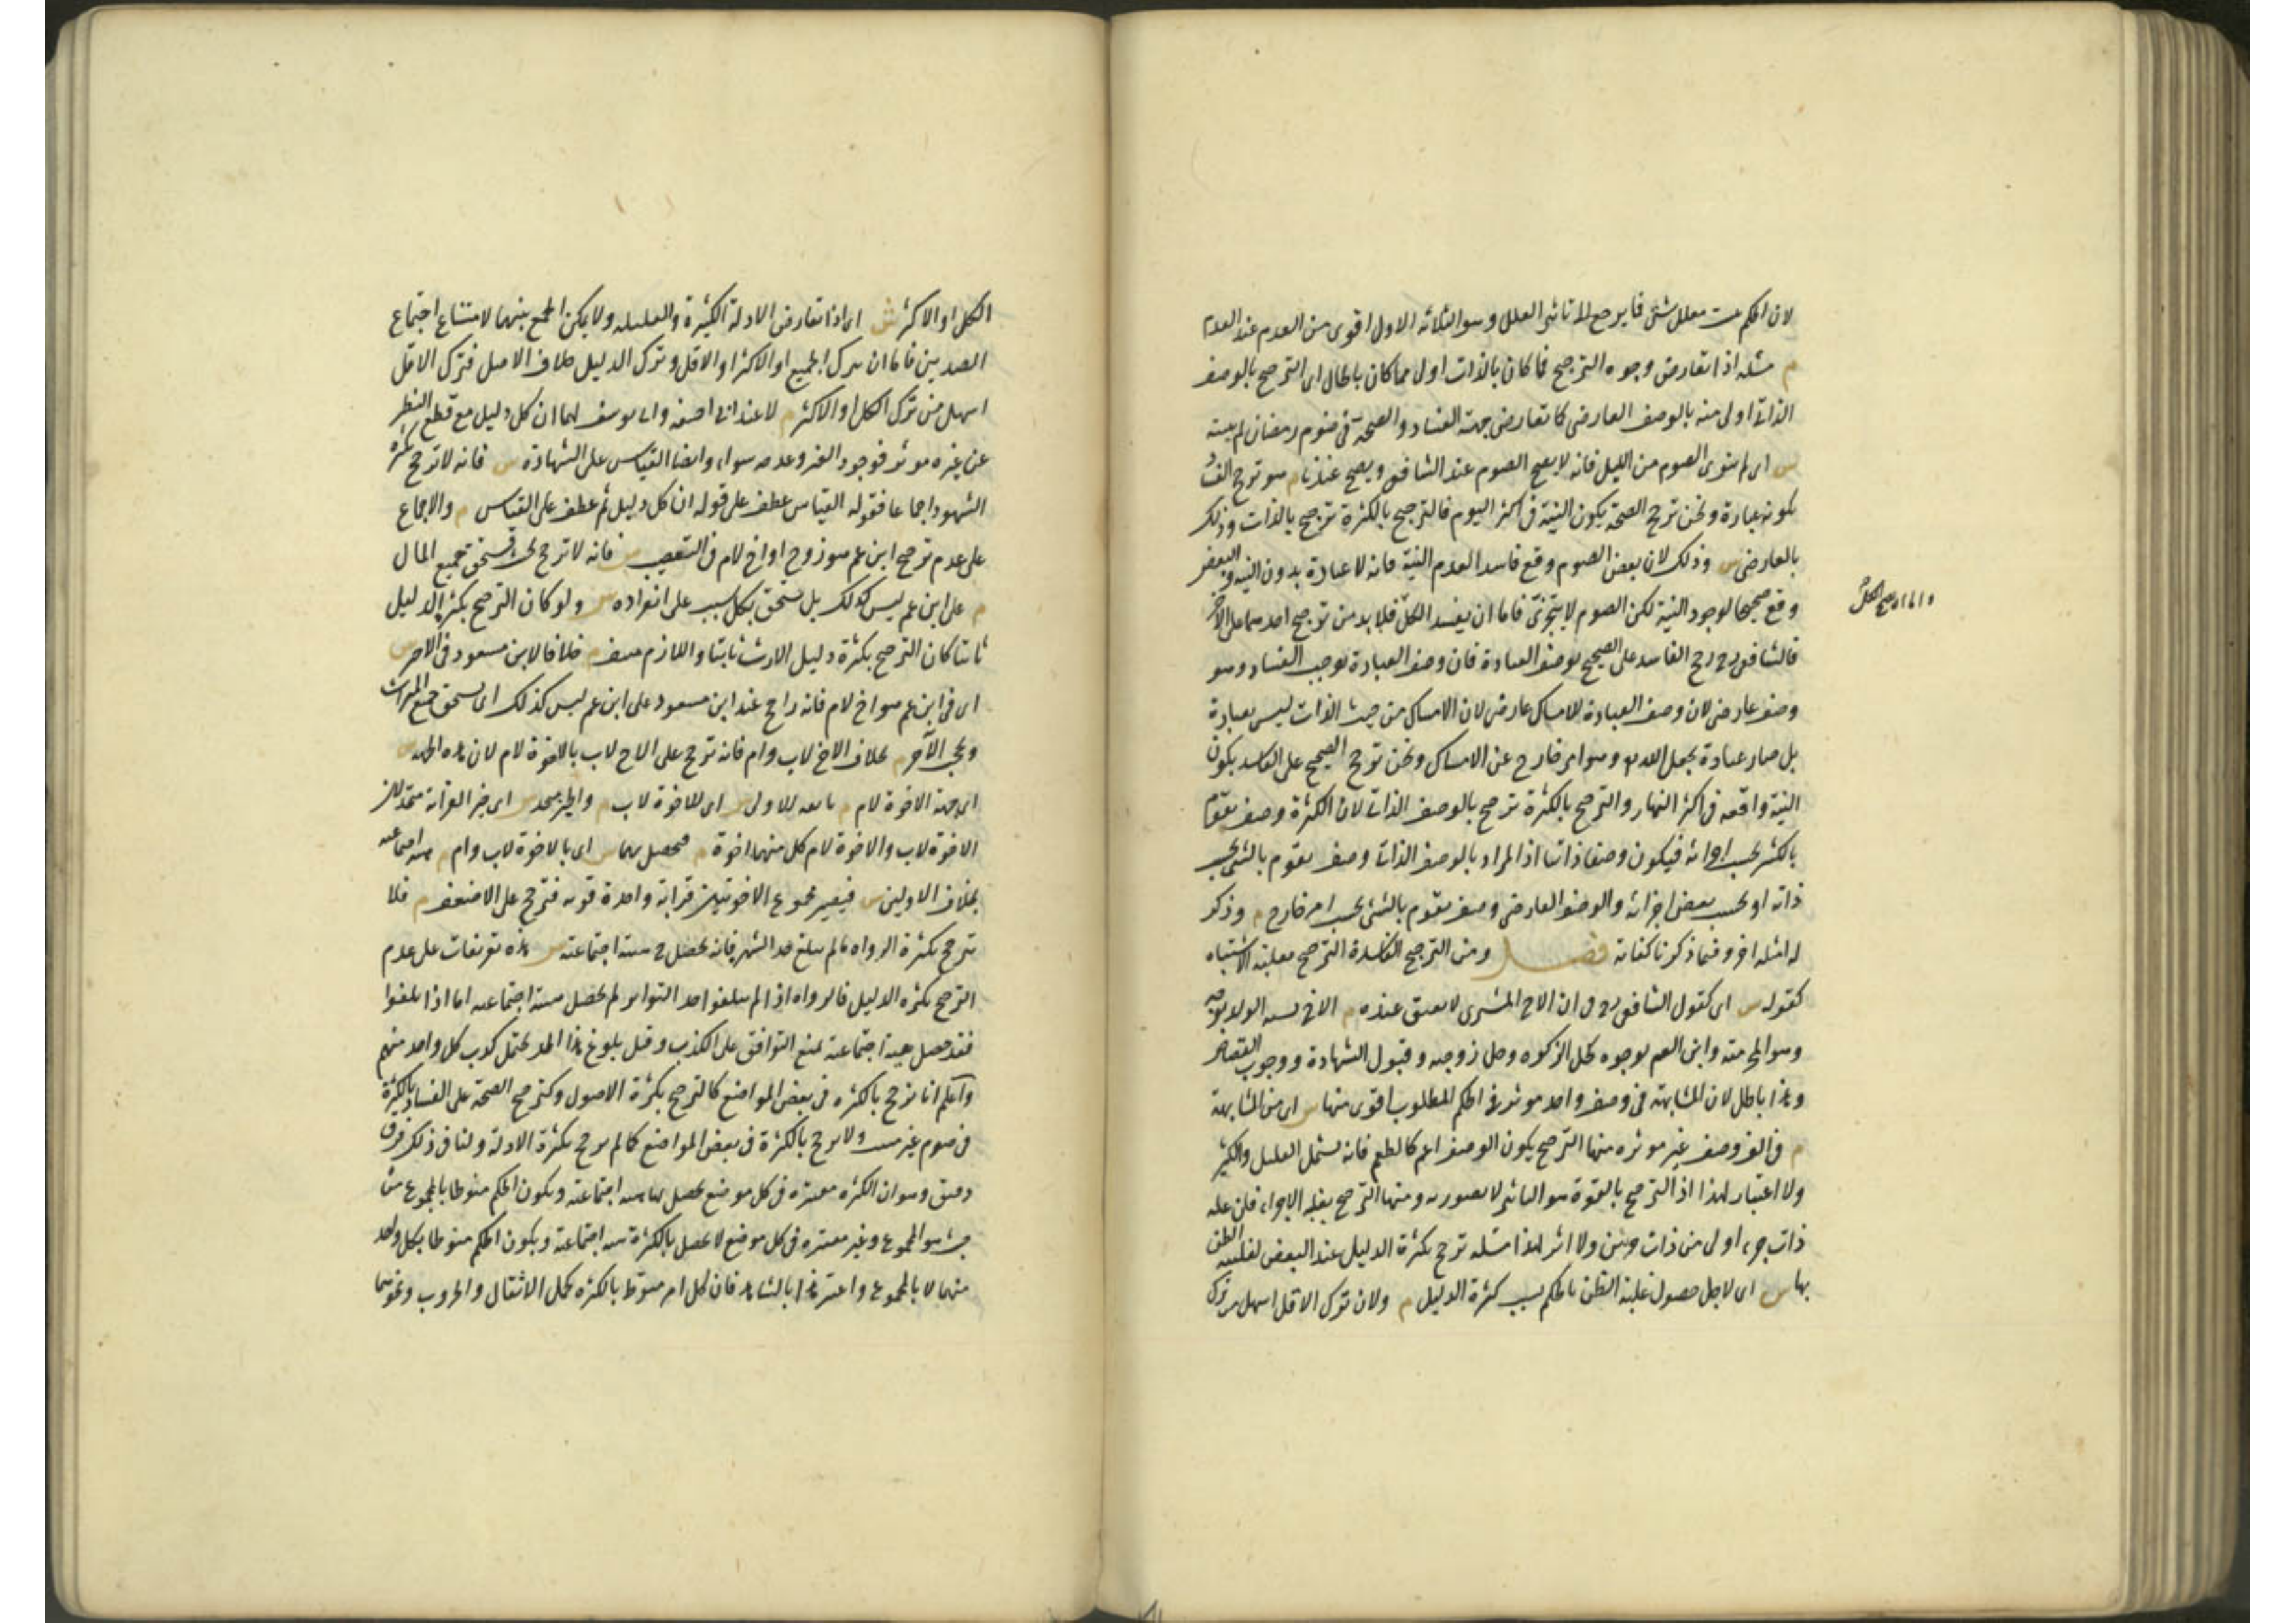 لان الحكم يثبت بعلل شتى فما يرجع الى تاثير العلل وهو الثلاثة الاول اقوى من العدم عند العدم
م مسئلة اذا تعارض وجوه الترجيح فما كان بالذات اولى مما كان بالحال اى الترجيح بالوصف
الذاتى اولى منه بالوصف العارضى كما تعارض جهة الفساد والصحة فى صوم رمضان لم يبيته
س اى لم ينوى الصوم من الليل فانه لا يصح الصوم عند الشافعى ويصح عندنا م هو ترجح الفساد
بكونه عبادة ونحن نرجح الصحة بكون النية فى اكثر اليوم فالترجيح بالكثرة ترجيح بالذات وذلك
بالعارضى س وذلك لان بعض الصوم وقع فاسدا لعدم النية فانه لا عبادة بدون النية والبعض
وقع صحيحا لوجود النية لكن الصوم لا يتجزى فاما ان يفسد الكل فلا بد من ترجيح احدهما على الآخر
واما ان يصح الكل
فالشافعى رح رجح الفاسد على الصحيح بوصف العبادة فان وصف العبادة توجب الفساد وهو
وصف عارضى لان وصف العبادة للامساك عارضى لان الامساك من حيث الذات ليس بعبادة
بل صار عبادة بجعل الله وهو امر خارج عن الامساك ونحن نرجح الصحيح على الفاسد بكون
النية واقعة فى اكثر النهار والترجيح بالكثرة ترجيح بالوصف الذاتى لان الكثرة وصف يقوم
بالكثير بحسب اجزائه فيكون وصفا ذاتيا اذ المراد بالوصف الذاتى وصف يقوم بالشئ بحسب
ذاته او بحسب بعض اجزائه والوصف العارضى وصف يقوم بالشئ بحسب امر خارج م وذكر
له امثلة اخر وفيما ذكرنا كفاية فصل ومن الترجيح الفاسدة الترجيح بغلبة الاشتباه
كقوله س اى كقول الشافعى رح فى ان الاخ المشترى لا يعتق عنده م الاخ يشبه الولد بوجه
وهو المحرمية وابن العم بوجوه كحل الزكوه وحل زوجته وقبول الشهادة ووجوب القصاص
وهذا باطل لان المشابهة فى وصف واحد موثر فى الحكم المطلوب اقوى منها س اى من المشابهة
م فى الف وصف غير موثره منها الترجيح بكون الوصف اعم كالطعم فانه يشمل القليل والكثير
ولا اعتبار لهذا اذ الترجيح بالقوة هو التاثير لا بصورته ومنها الترجيح بقلة الاجزاء فان علة
ذات جزء اولى من ذات جزئين ولا اثر لهذا مسئلة ترجح بكثرة الدليل عند البعض لغلبة الظن
بها س اى لاجل حصول غلبة الظن بالحكم بسبب كثرة الدليل م ولان ترك الاقل اسهل من ترك
الكل او الاكثر ش اى اذا تعارض الادلة الكثيرة والقليلة ولا يمكن الجمع بينها لامتناع اجتماع
الضدين فاما ان يترك الجميع او الاكثر او الاقل وترك الدليل خلاف الاصل فترك الاقل
اسهل من ترك الكل او الاكثر م لا عند ابى حنيفة وابى يوسف لهما ان كل دليل مع قطع النظر
عن غيره موثر فوجود الغير وعدمه سواء وايضا القياس على الشهادة س فانه لا ترجح بكثرة
الشهود اجماعا فقوله القياس عطف على قوله ان كل دليل ثم عطف على القياس م والاجماع
على عدم ترجيح ابن عم هو زوج او اخ لام فى التعصيب س فانه لا ترجح بحيث يستحق جميع المال
م على ابن عم ليس كذلك بل يستحق بكل سبب على انفراده س ولو كان الترجيح بكثرة الدليل
ثابتا كان الترجيح بكثرة دليل الارث ثابتا واللازم منتف م خلافا لابن مسعود فى الاخير س
اى فى ابن عم هو اخ لام فانه راجح عند ابن مسعود على ابن عم ليس كذلك اى يستحق جميع الميراث
ويحجب الآخر م بخلاف الاخ لاب وام فانه ترجح على الاخ لاب بالاخوة لام لان هذه الجهة س
اى جهة الاخوة لام م تابعة للاولى س اى للاخوة لاب م والحيز متحد س اى حيز القرابة متحد لان
الاخوة لاب والاخوة لام كل منهما اخوة م فيحصل بهما س اى بالاخوة لاب وام م هيئة اجتماعية
بخلاف الاولين س فيصير مجموع الاخوتين قرابة واحدة قوية فترجح على الاضعف م فلا
يترجح بكثرة الرواة ما لم يبلغ حد الشهرة فانه يحصل ح هيئة اجتماعية س هذه تفريعات على عدم
الترجيح بكثرة الدليل فالرواة اذا لم يبلغوا حد التواتر لم يحصل هيئة اجتماعية اما اذا بلغوا
فقد حصل هيئة اجتماعية تمنع التوافق على الكذب وقبل بلوغ هذا الحد يحتمل كذب كل واحد منهم
واعلم انا نرجح بالكثرة فى بعض المواضع كالترجيح بكثرة الاصول وكترجيح الصحة على الفساد بالكثرة
فى صوم غير مبيت ولا نرجح بالكثرة فى بعض المواضع كما لم نرجح بكثرة الادلة ولنا فى ذلك فرق
دقيق وهو ان الكثرة معتبرة فى كل موضع يحصل بها هيئة اجتماعية ويكون الحكم منوطا بالمجموع من
حيث هو المجموع وغير معتبرة فى كل موضع لا يحصل بالكثرة هيئة اجتماعية ويكون الحكم منوطا بكل واحد
منهما لا بالمجموع واعتبر هذا بالشاهد فان كل امر منوط بالكثرة كحمل الاثقال والحروب ونحوهما